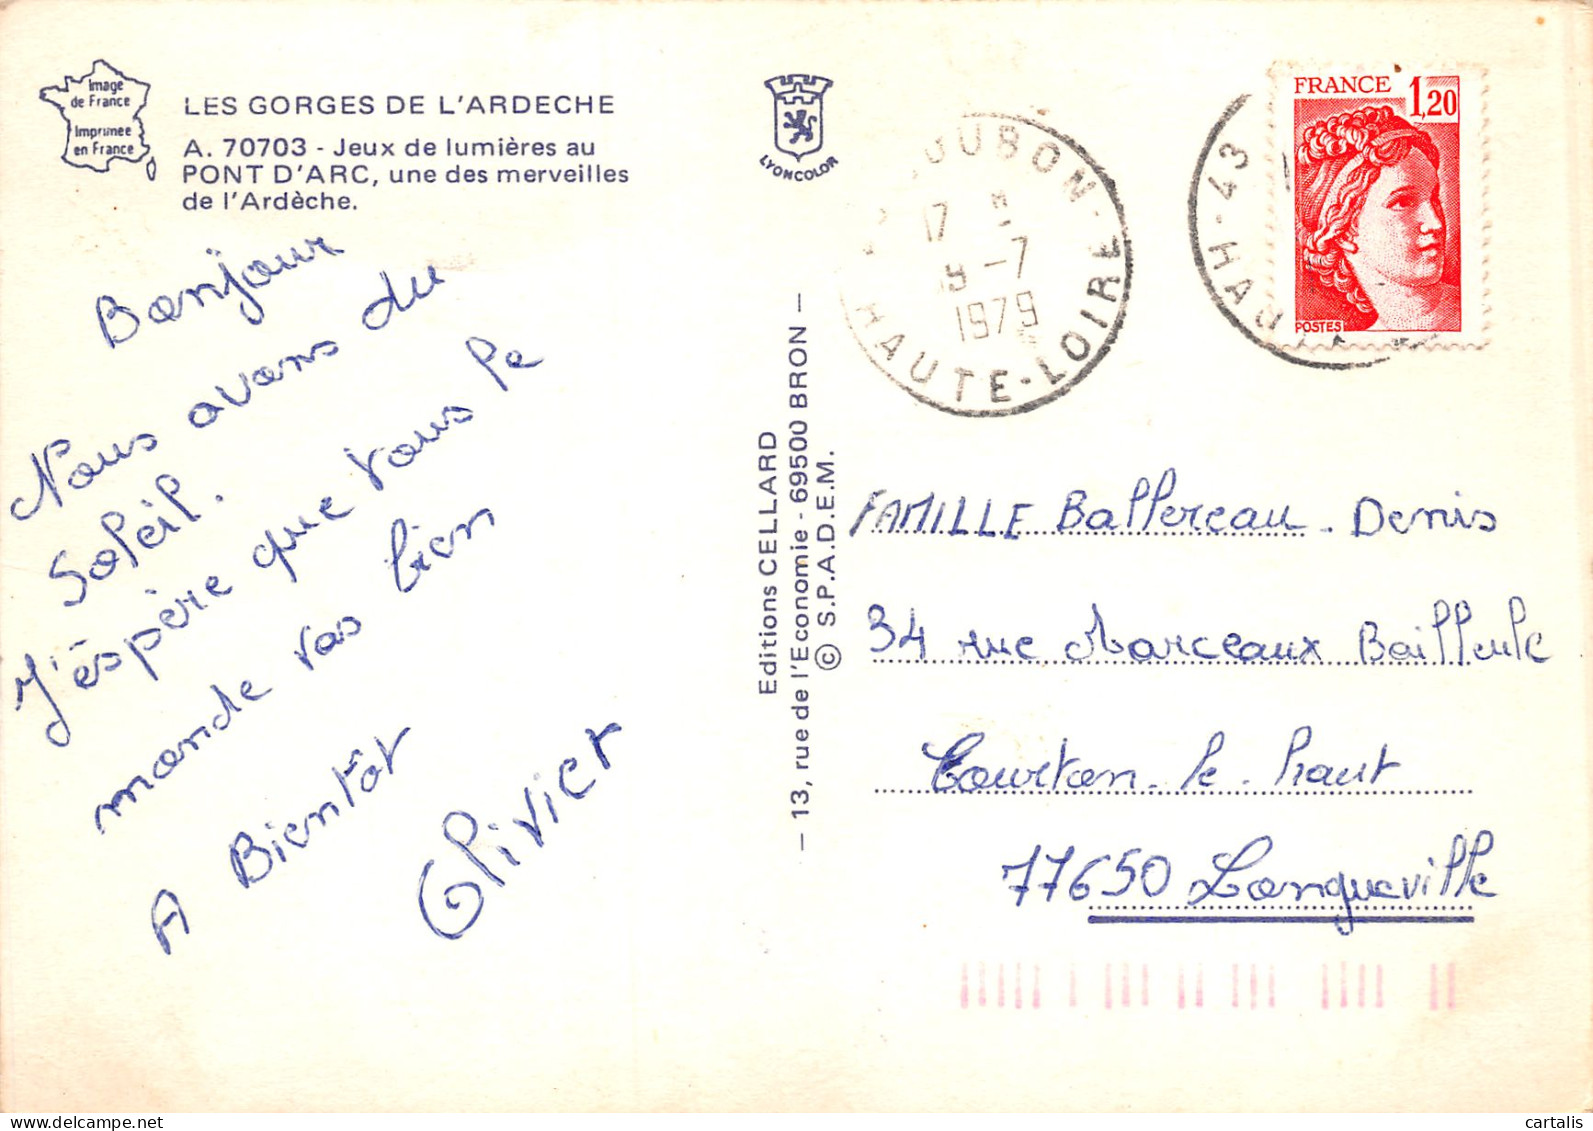 Image
de France
Imprimee
en France
LES GORGES DE L'ARDECHE
A. 70703 - Jeux de lumières au
PONT D'ARC, une des merveilles
de l'Ardèche.
LYONCOLOR
Bonjour
Nous avons du
Soleil.
J'éspère que vous le
monde vas bien
A Bientôt
Olivier
Editions CELLARD
— 13, rue de l'Economie - 69500 BRON —
© S.P.A.D.E.M.
17
9 - 7
1979
HAUTE-LOIRE
43 - HAU
FRANCE 1,20
POSTES
FAMILLE Ballereau. Denis
34 rue Marceaux Bailleule
Courton. le. haut
77650 Longueville
cartalis
delcampe.net